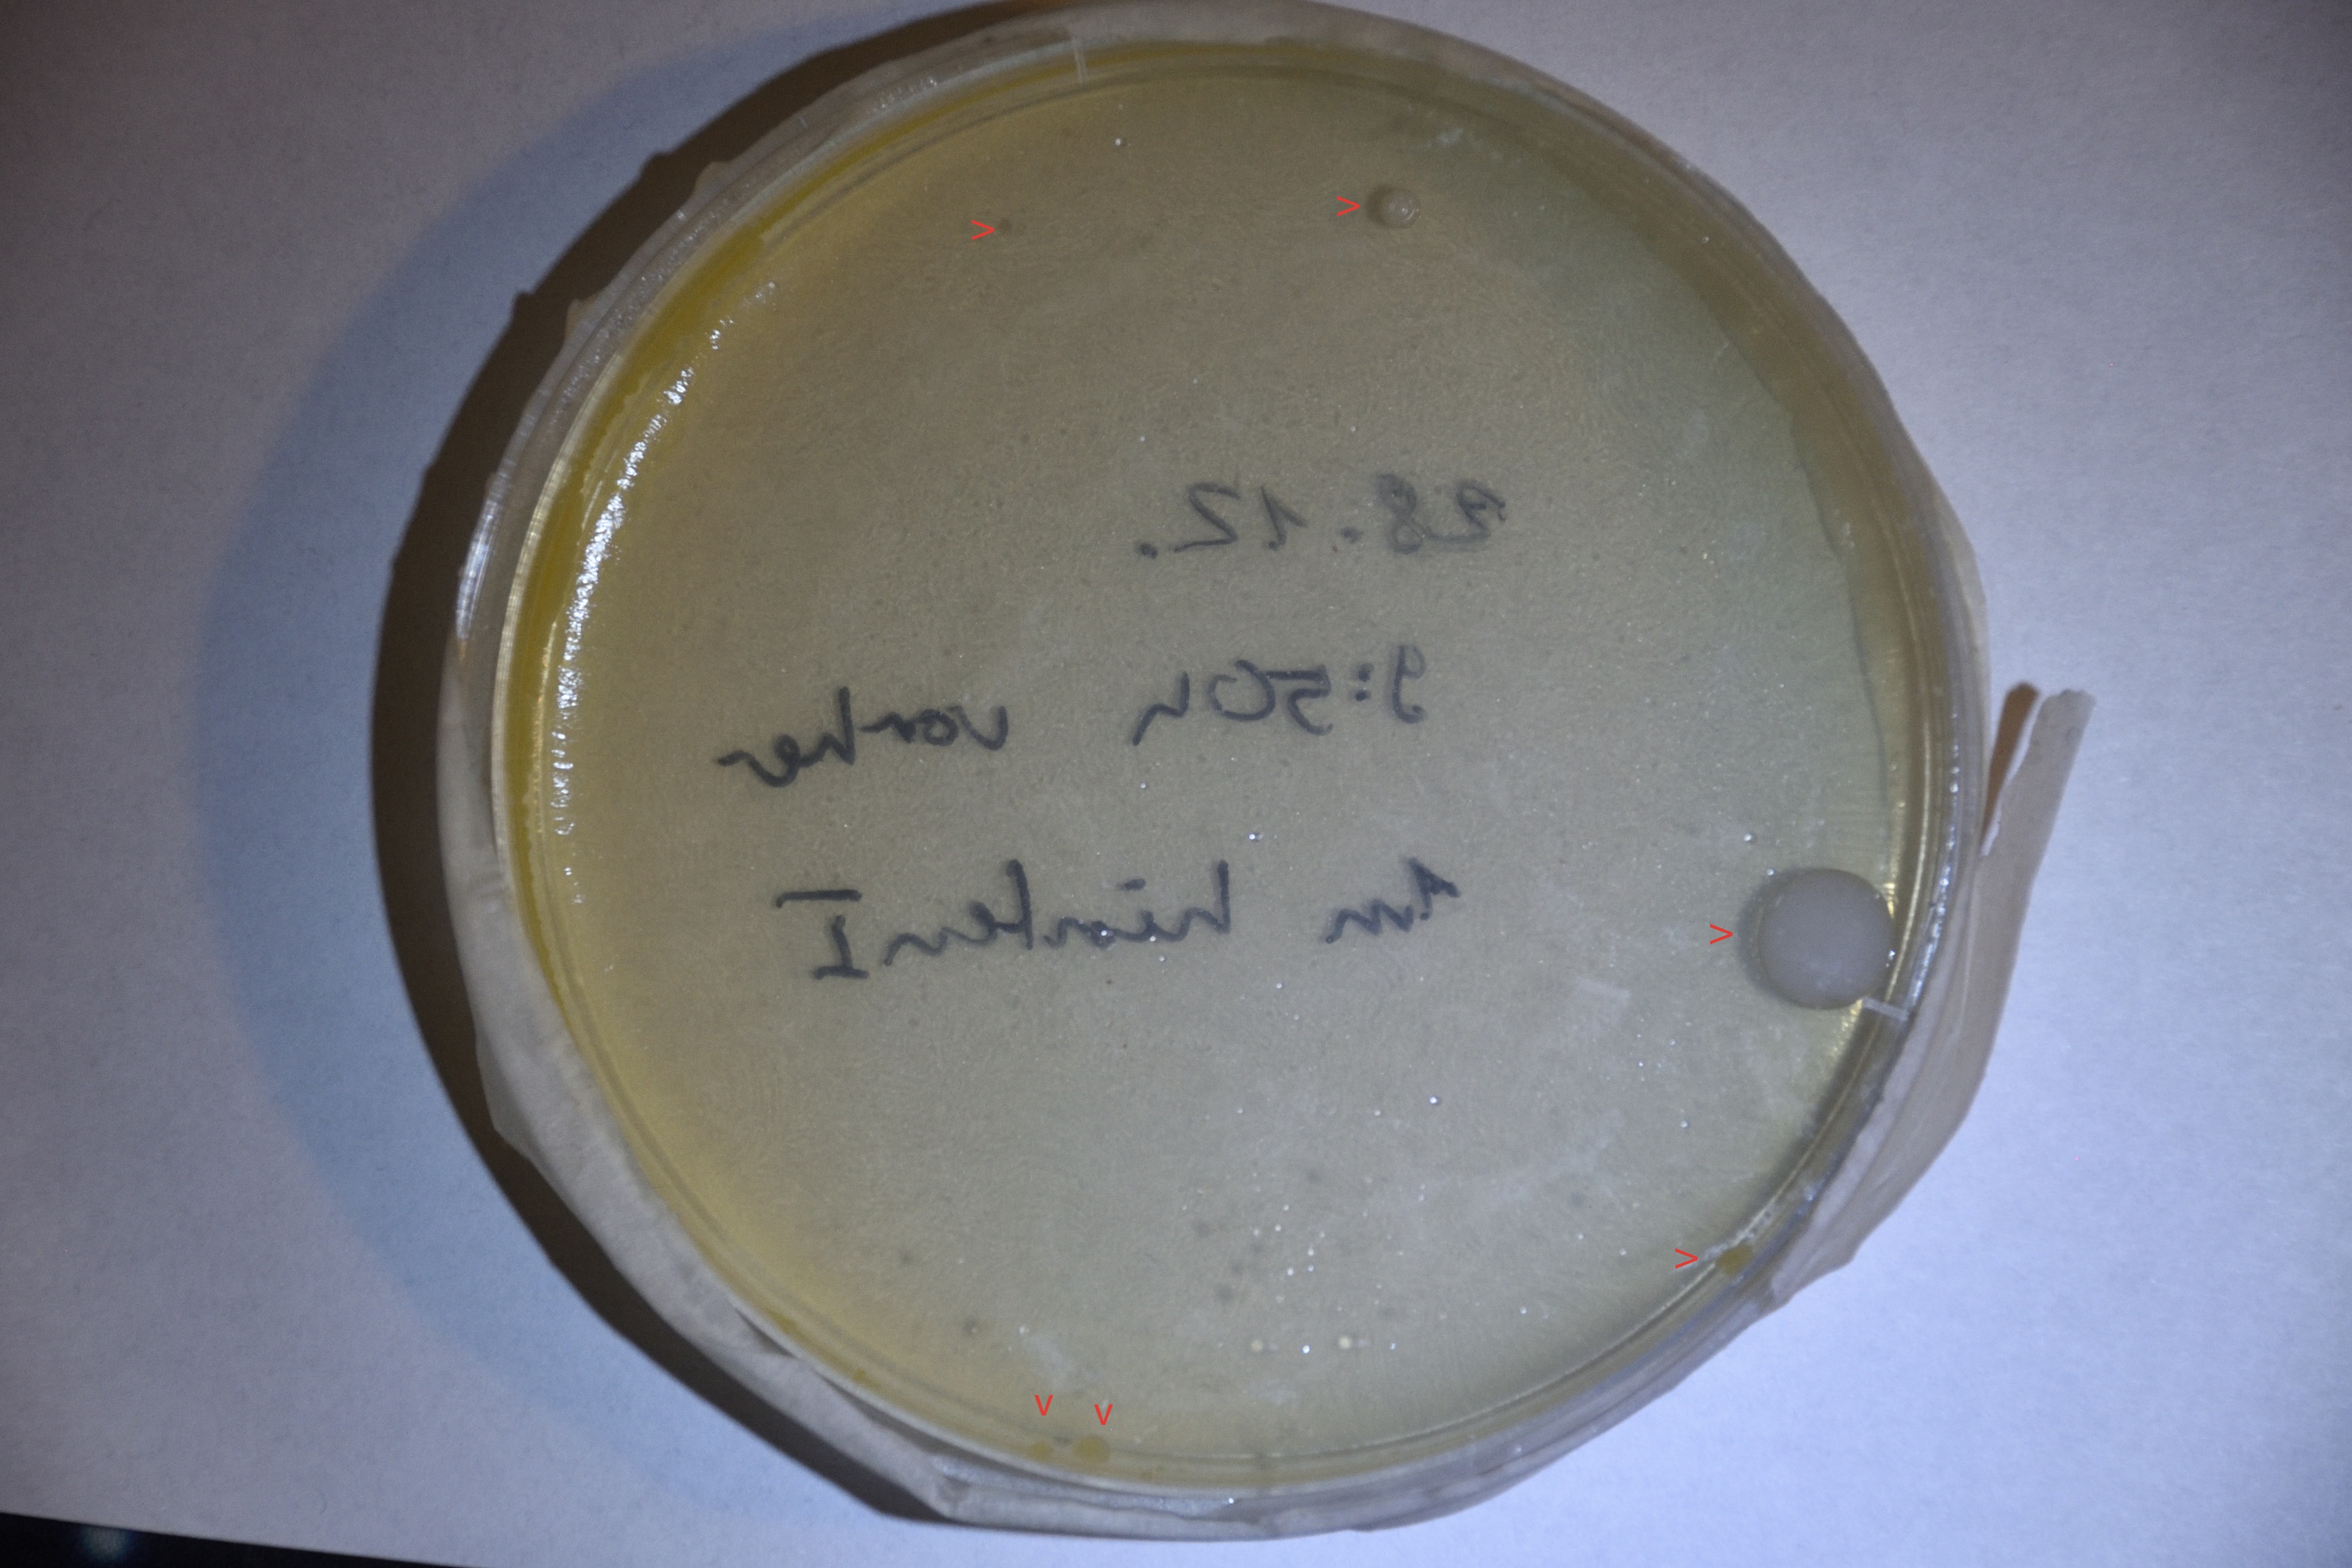 28.12.
9:50h vorher
Am hinten I